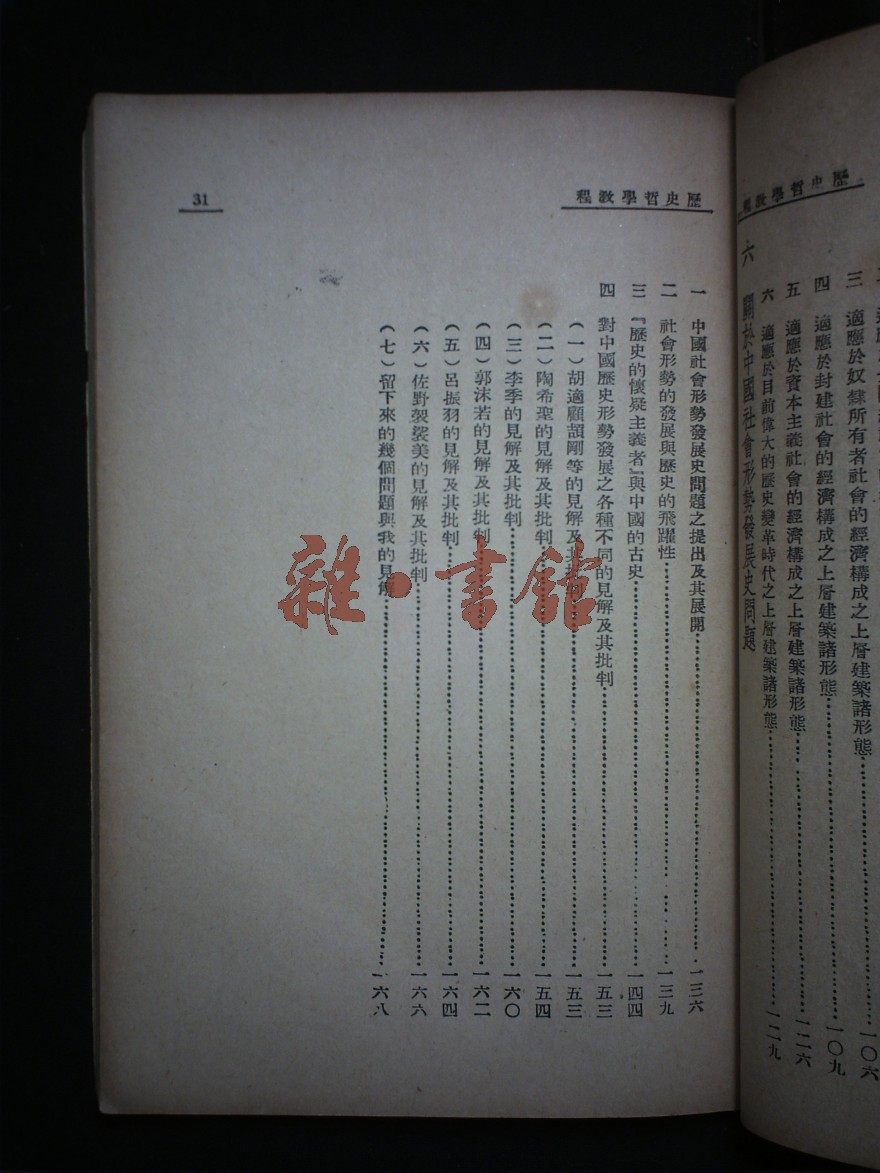 歷史哲學教程
三 適應於奴隸所有者社會的經濟構成之上層建築諸形態……一〇六
四 適應於封建社會的經濟構成之上層建築諸形態……一〇九
五 適應於資本主義社會的經濟構成之上層建築諸形態……一二六
六 適應於目前偉大的歷史變革時代之上層建築諸形態……一二九
六 關於中國社會形勢發展史問題
歷史哲學教程
31
一 中國社會形勢發展史問題之提出及其展開……一三六
二 社會形勢的發展與歷史的飛躍性……一三九
三 『歷史的懷疑主義者』與中國的古史……一四四
四 對中國歷史形勢發展之各種不同的見解及其批判……一五三
(一)胡適顧頡剛等的見解及其批判……一五三
(二)陶希聖的見解及其批判……一五四
(三)李季的見解及其批判……一六〇
(四)郭沫若的見解及其批判……一六二
(五)呂振羽的見解及其批判……一六四
(六)佐野袈裟美的見解及其批判……一六六
(七)留下來的幾個問題與我的見解……一六八
雜·書館